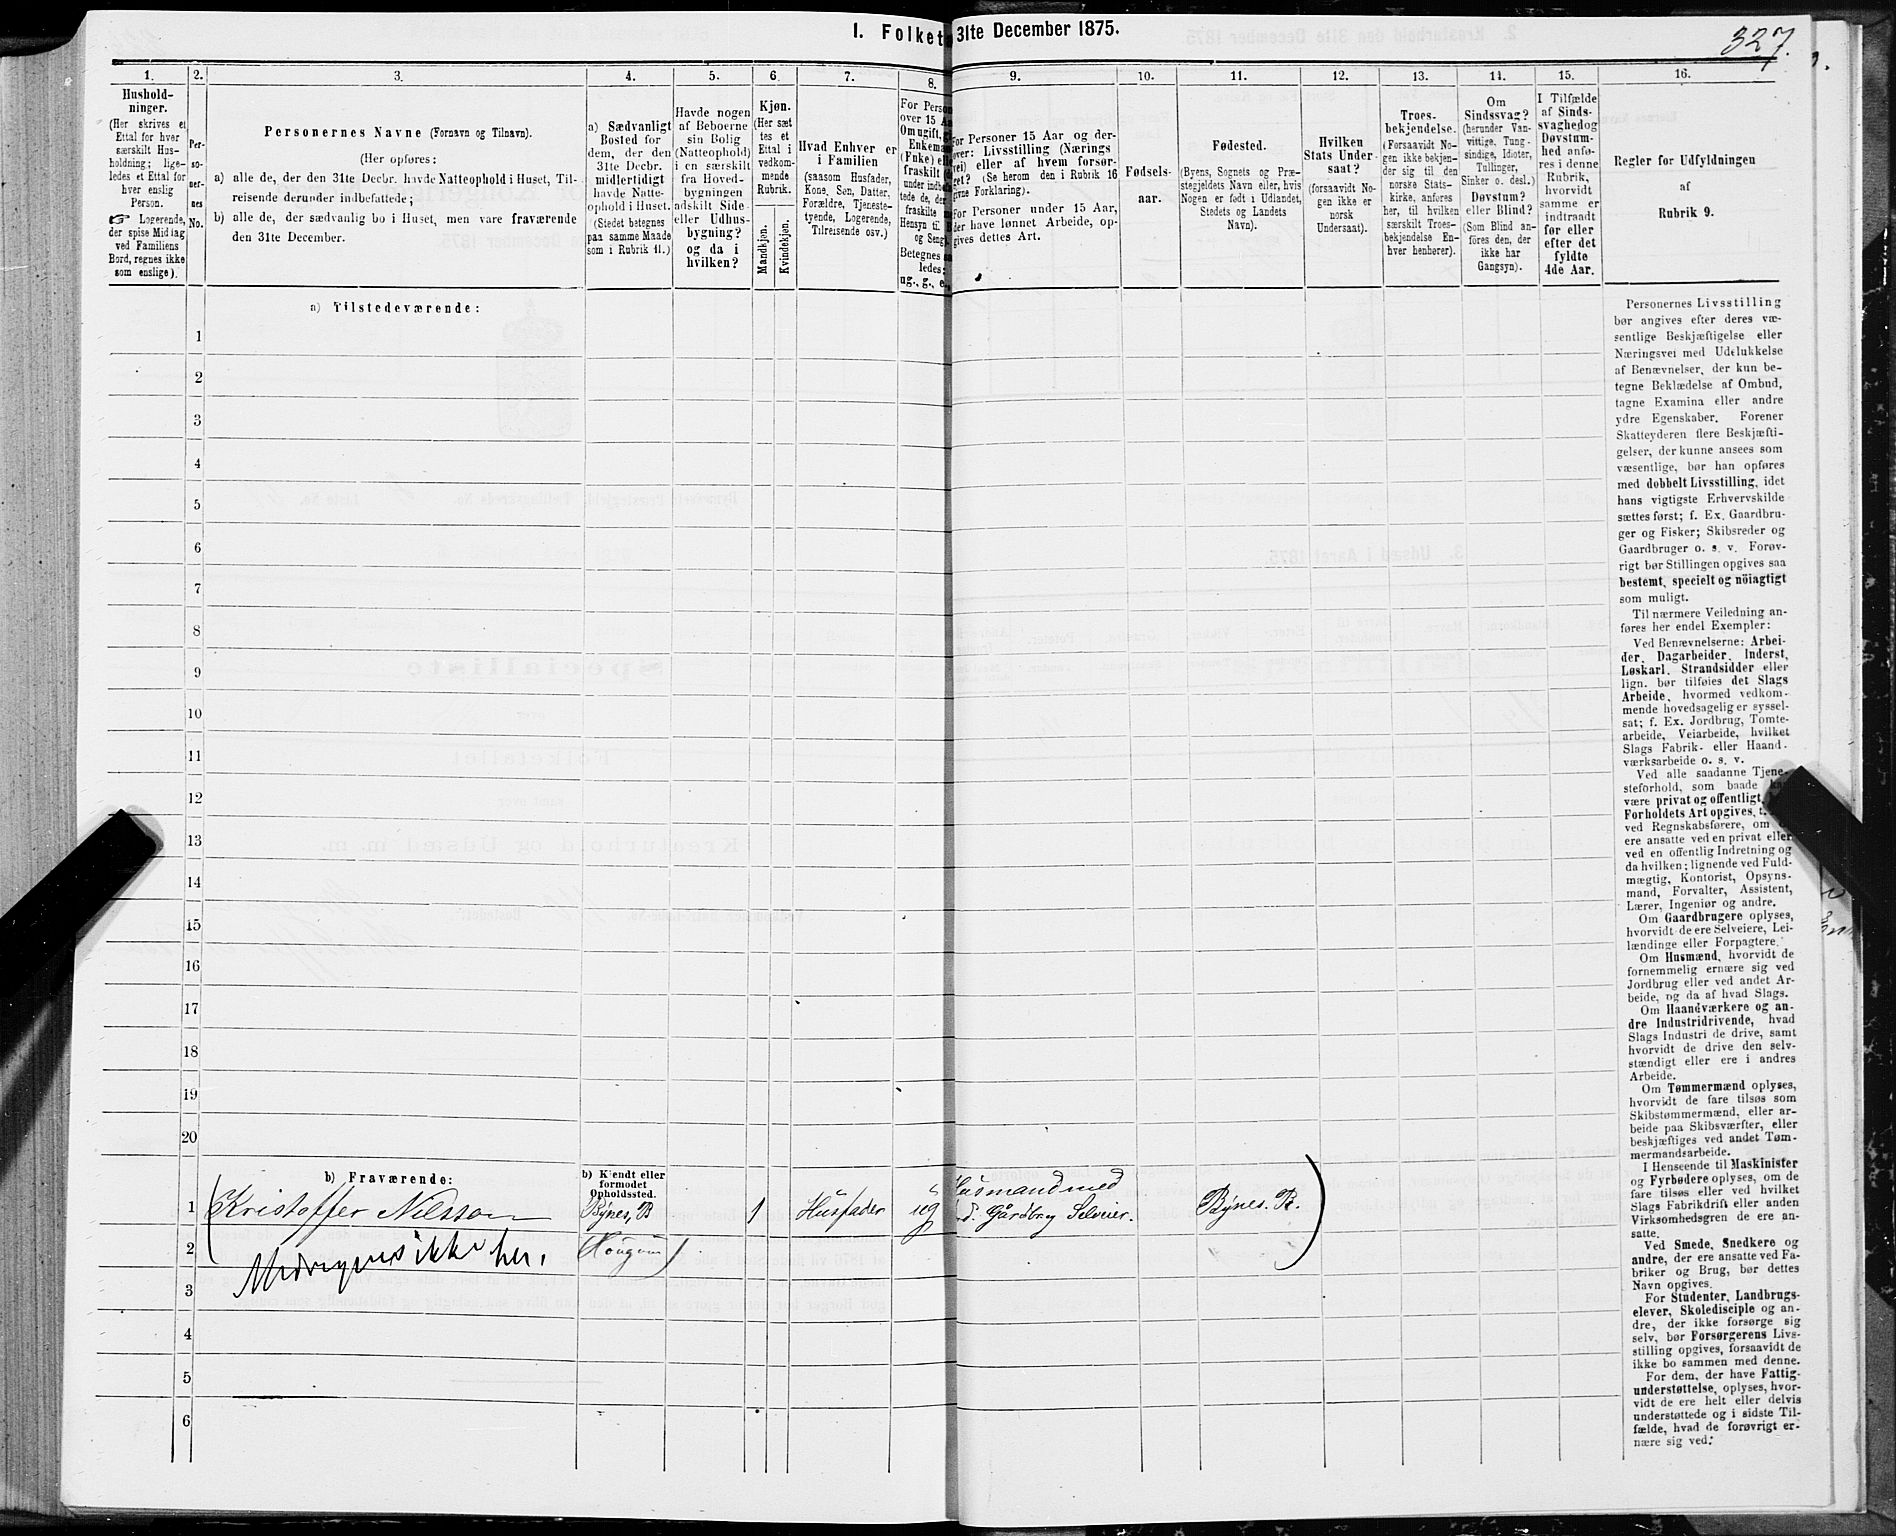 I. Folket
31te December 1875.
327.
1.
2.
3.
4.
5.
6.
7.
8.
9.
10.
11.
12.
13.
14.
15.
16.
Hushold-
ninger.
(Her skrives et
Ettal for hver
særskilt Hus-
holdning; lige-
ledes et Ettal for
hver enslig
Person.
☞ Logerende,
der spise Middag
ved Familiens
Bord, regnes ikke
som enslige).
Per-
so-
ner-
nes
No.
Personernes Navne (Fornavn og Tilnavn).
(Her opføres:
a) alle de, der den 31te Decbr. havde Natteophold i Huset, Til-
reisende derunder indbefattede;
b) alle de, der sædvanlig bo i Huset, men vare fraværende
den 31te December.
a) Sædvanligt
Bosted for
dem, der den
31te Decbr.
midlertidigt
havde Natte-
ophold i Huset.
(Stedet betegnes
paa samme Maade
som i Rubrik 11.)
Havde nogen
af Beboerne
sin Bolig
(Natteophold)
i en særskilt
fra Hoved-
bygningen
adskilt Side-
eller Udhus-
bygning?
og da i
hvilken?
Kjøn.
(Her sæt
tes et
Ettal i
vedkom-
mende
Rubrik.
Mandkjøn.
Kvindekjøn.
Hvad Enhver er
i Familien
(saasom Husfader,
Kone, Søn, Datter,
Forældre, Tjeneste-
tyende, Logerende,
Tilreisende osv.)
For Person
over 15 A
Om ugift, g
Enkema
(Fnke) ell
fraskilt
under indbe
tede de, der
fraskilte
Hensyn til B
og Seng).
Betegnes s
ledes:
ug., g., e.,
For Personer 15 Aar og der-
over: Livsstilling (Nærings
vei) eller af hvem forsør-
get? (Se herom den i Rubrik 16
givne Forklaring).
For Personer under 15 Aar,
der have lønnet Arbeide, op-
gives dettes Art.
Fødsels-
aar.
Fødested.
(Byens, Sognets og Præ-
stegjeldets Navn eller, hvis
Nogen er født i Udlandet,
Stedets og Landets
Navn).
Hvilken
Stats Under-
saat?
(forsaavidt No-
gen ikke er
norsk
Undersaat).
Troes-
bekjendelse.
(Forsaavidt No-
gen ikke bekjen-
der sig til den
norske Stats-
kirke, anføres
her, til hvilken
særskilt Troes-
bekjendelse En-
hver henhører).
Om
Sindssvag?
(herunder Van-
vittige, Tung-
sindige, Idioter,
Tullinger,
Sinker o. desl.)
Døvstum?
eller Blind?
(Som Blind an-
føres den, der
ikke har
Gangsyn).
I Tilfælde
af Sinds-
svaghed og
Døvstum-
hed anfø-
res i denne
Rubrik,
hvorvidt
samme er
indtraadt
før eller
efter det
fyldte
4de Aar.
Regler for Udfyldningen
af
Rubrik 9.
a) Tilstedeværende:
1
2
3
4
5
6
7
8
9
10
11
12
13
14
15
16
17
18
19
20
b) Fraværende:
b) Kjendt eller
formodet
Opholdssted.
1 Kristoffer Nilsson Bynes, B 1 Husfader ug Husmand med
d. Gårdbrg Selveier. Bynes. B.
2 ikke her.
3
4
5
6
Personernes Livsstilling
bør angives efter deres væ-
sentlige Beskjæftigelse eller
Næringsvei med Udelukkelse
af Benævnelser, der kun be-
tegne Beklædelse af Ombud,
tagne Examina eller andre
ydre Egenskaber. Forener
Skatteyderen flere Beskjæfti-
gelser, der kunne ansees som
væsentlige, bør han opføres
med dobbelt Livsstilling, idet
hans vigtigste Erhvervskilde
sættes først; f. Ex. Gaardbru-
ger og Fisker; Skibsreder og
Gaardbruger o. s. v. Forøv-
rigt bør Stillingen opgives saa
bestemt, specielt og nöiagtigt
som muligt.
Til nærmere Veiledning an-
føres her endel Exempler:
Ved Benævnelserne: Arbei-
der, Dagarbeider, Inderst,
Løskarl, Strandsidder eller
lign. bør tilføies det Slags
Arbeide, hvormed vedkom-
mende hovedsagelig er syssel-
sat; f. Ex. Jordbrug, Tomte-
arbeide, Veiarbeide, hvilket
Slags Fabrik- eller Haand-
værksarbeide o. s. v.
Ved alle saadanne Tjene-
steforhold, som baade
være privat og offentligt,
Forholdets Art opgives, t.
ved Regnskabsførere, om
ere ansatte ved en privat eller
ved en offentlig Indretning og
da hvilken; lignende ved Fuld-
mægtig, Kontorist, Opsyns-
mand, Forvalter, Assistent,
Lærer, Ingeniør og andre.
Om Gaardbrugere oplyses,
hvorvidt de ere Selveiere, Lei-
lændinge eller Forpagtere.
Om Husmænd, hvorvidt de
fornemmelig ernære sig ved
Jordbrug eller ved andet Ar-
beide, og da af hvad Slags.
Om Haandværkere og an-
dre Industridrivende, hvad
Slags Industri de drive, samt
hvorvidt de drive den selv-
stændigt eller ere i andres
Arbeide.
Om Tømmermænd oplyses,
hvorvidt de fare tilsøs som
Skibstømmermænd, eller ar-
beide paa Skibsværfter, eller
beskjæftiges ved andet Tøm-
mermandsarbeide.
I Henseende til Maskinister
og Fyrbødere oplyses, om de
fare tilsøs eller ved hvilket
Slags Fabrikdrift eller anden
Virksomhedsgren de ere an-
satte.
Ved Smede, Snedkere og
andre, der ere ansatte ved Fa-
briker og Brug, bør dettes
Navn opgives.
For Studenter, Landbrugs-
elever, Skoledisciple og an-
dre, der ikke forsørge sig
selv, bør Forsørgerens Livs-
stilling opgives, forsaavidt de
ikke bo sammen med denne.
For dem, der have Fattig-
understøttelse, oplyses, hvor-
vidt de ere helt eller delvis
understøttede og i sidste Til-
fælde, hvad de forøvrigt er-
nære sig ved.